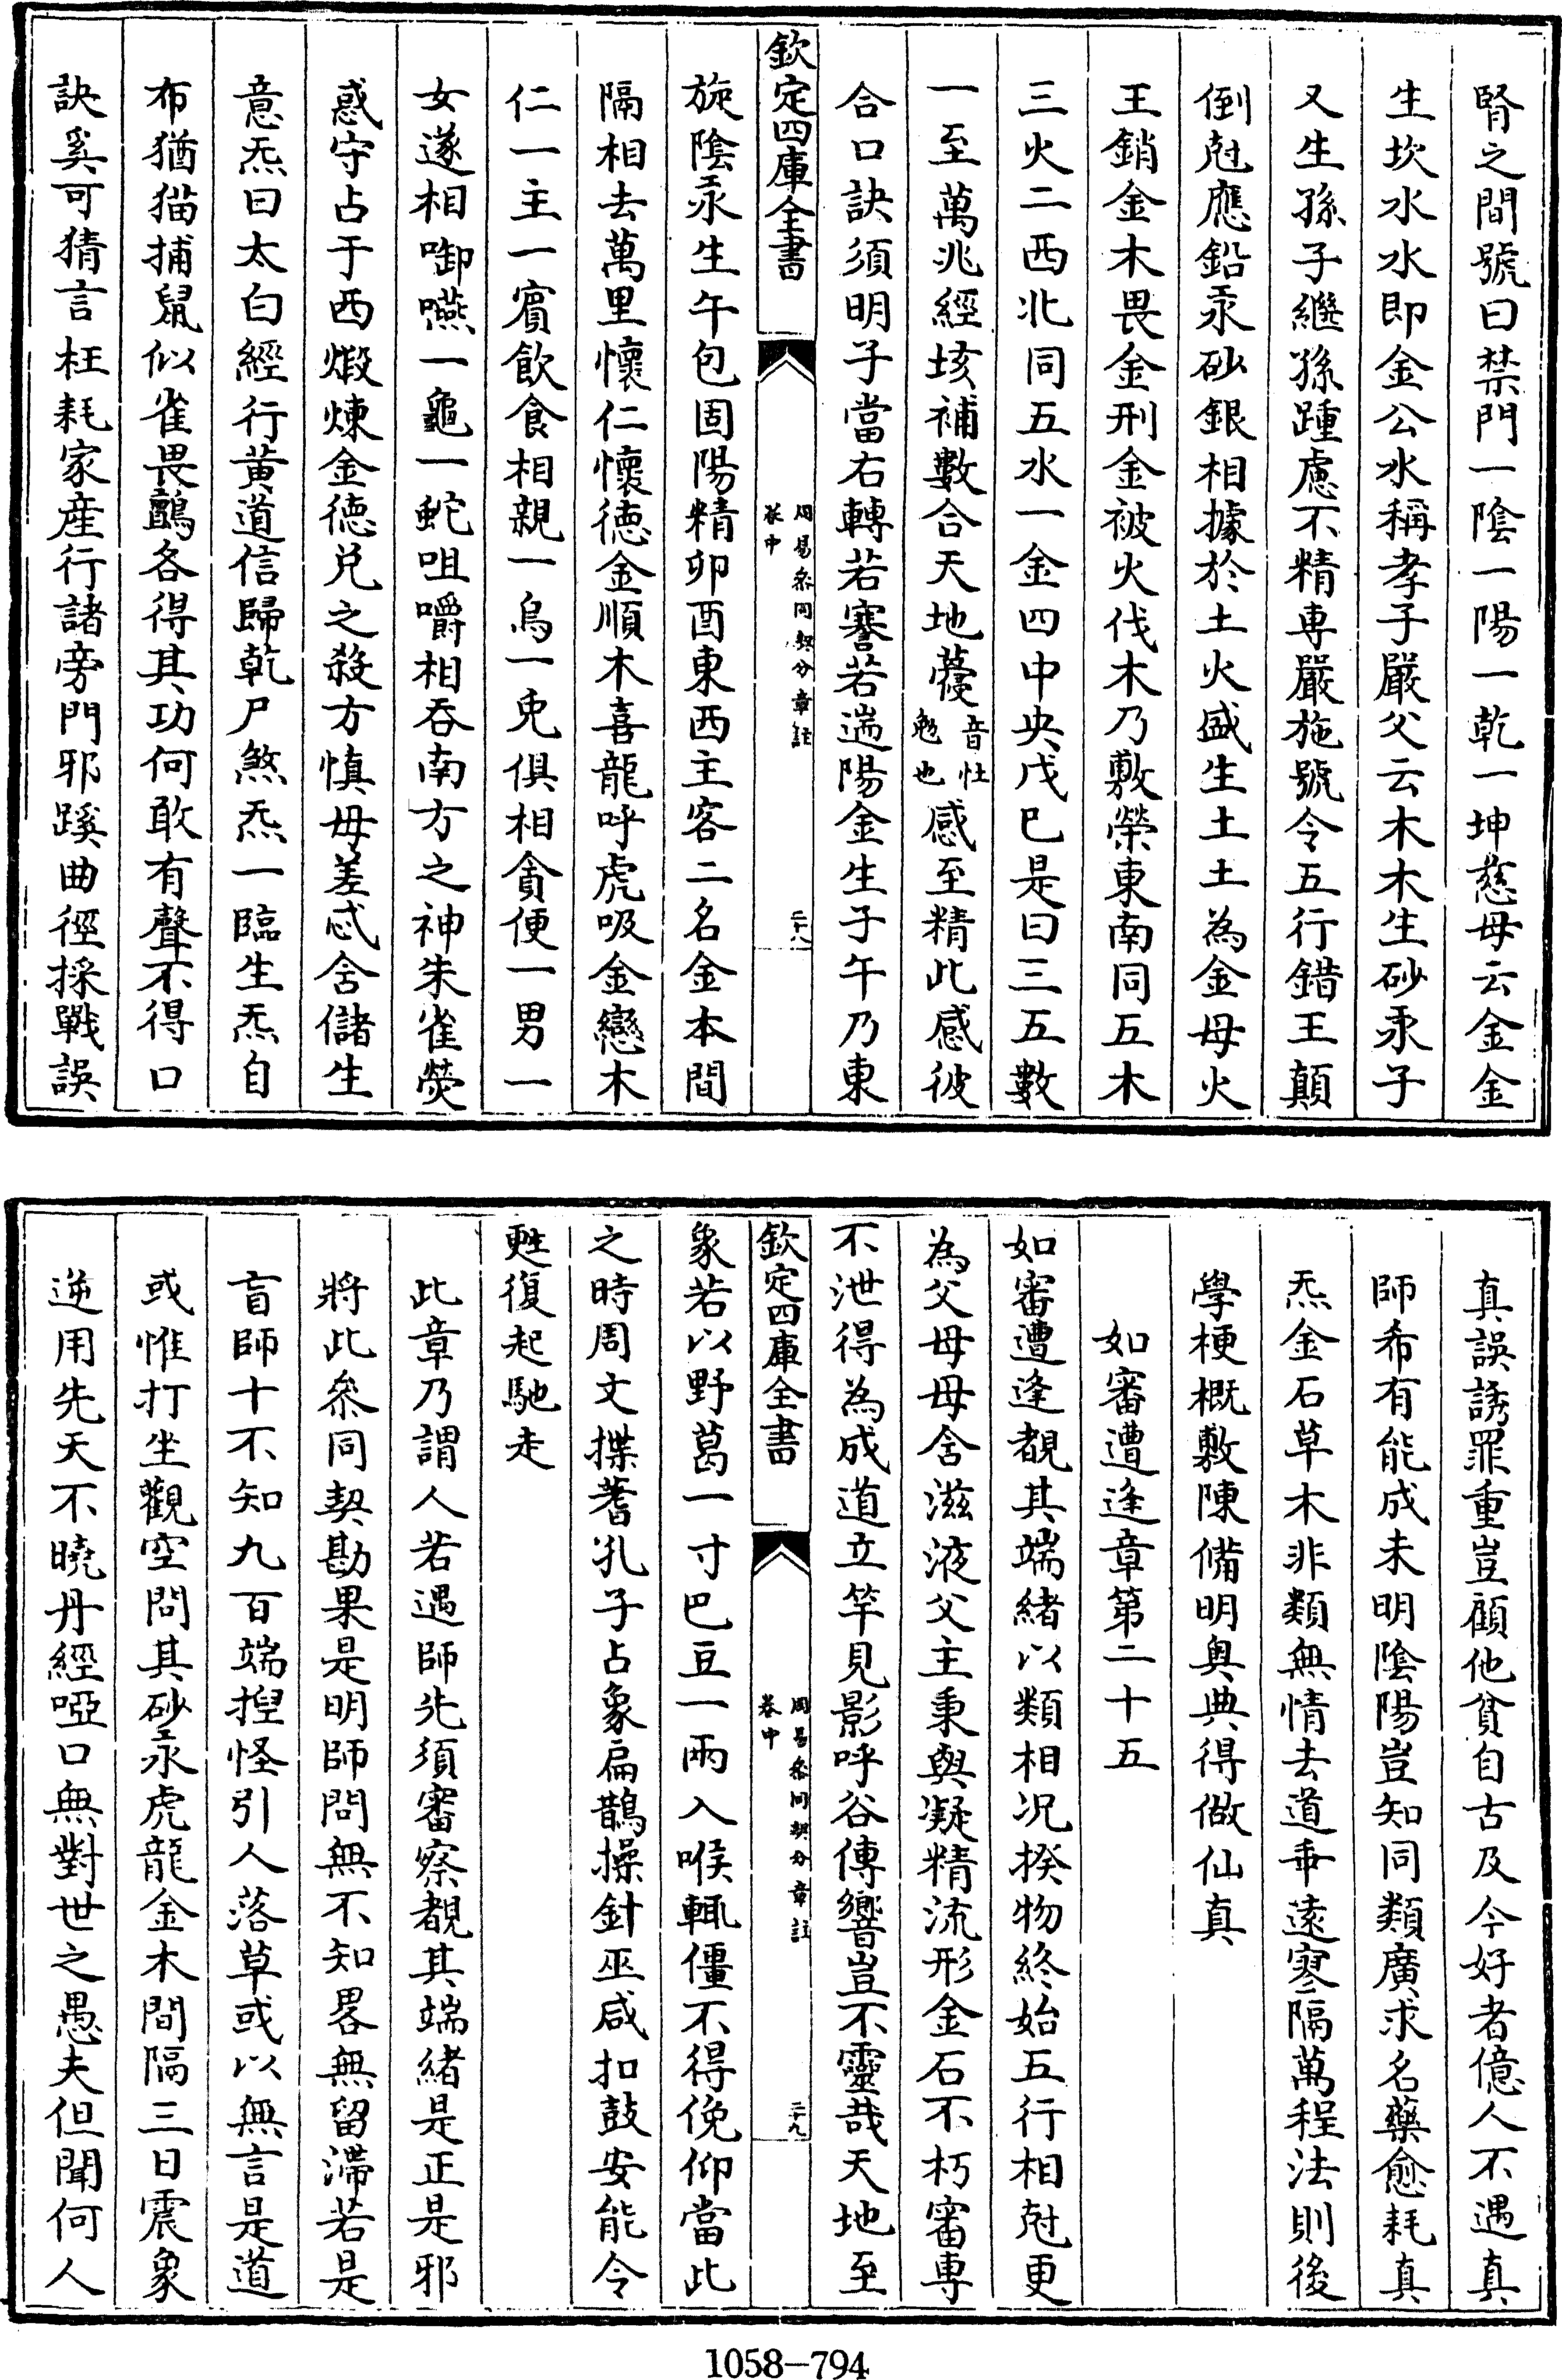 腎之間號曰禁門一陰一陽一乾一坤慈母云金金
生坎水水即金公水稱孝子嚴父云木木生砂汞子
又生孫子繼孫踵慮不精専嚴施號令五行錯王顛
倒尅應鉛汞砂銀相據於土火盛生土土為金母火
王銷金木畏金刑金被火伐木乃敷榮東南同五木
三火二西北同五水一金四中央戊巳是曰三五數
一至萬兆經垓補數合天地薆音壯勉也感至精此感彼
合口訣須明子當右轉若謇若遄陽金生子午乃東
欽定四庫全書
周易參同契分章註
卷中
二十八
旋陰汞生午包固陽精卯酉東西主客二名金本間
隔相去萬里懷仁懷徳金順木喜龍呼虎吸金戀木
仁一主一賓飲食相親一烏一兎俱相貪便一男一
女遂相啣嚥一龜一蛇咀嚼相吞南方之神朱雀熒
惑守占于西煅煉金徳兌之殺方慎毋差忒含儲生
意炁曰太白經行黄道信歸乾尸煞炁一臨生炁自
布猶猫捕鼠似雀畏鸇各得其功何敢有聲不得口
訣奚可猜言枉耗家産行諸旁門邪蹊曲徑採戰誤
真誤誘罪重豈顧他貧自古及今好者億人不遇真
師希有能成未明陰陽豈知同類廣求名藥愈耗真
炁金石草木非類無情去道乖遠寒隔萬程法則後
學梗概敷陳備明奥典得做仙真
如審遭逢章第二十五
如審遭逢覩其端緒以類相况揆物終始五行相尅更
為父母母含滋液父主秉與凝精流形金石不朽審専
不泄得為成道立竿見影呼谷傳響豈不靈哉天地至
欽定四庫全書
周易參同契分章註
卷中
二十九
象若以野葛一寸巴豆一兩入喉輒僵不得俛仰當此
之時周文揲蓍孔子占象扁鵲操針巫咸扣鼓安能令
甦復起馳走
此章乃謂人若遇師先須審察覩其端緒是正是邪
將此參同契勘果是明師問無不知畧無留滯若是
盲師十不知九百端揑怪引人落草或以無言是道
或惟打坐觀空問其砂汞虎龍金木間隔三日震象
逆用先天不曉丹經啞口無對世之愚夫但聞何人
1058-794